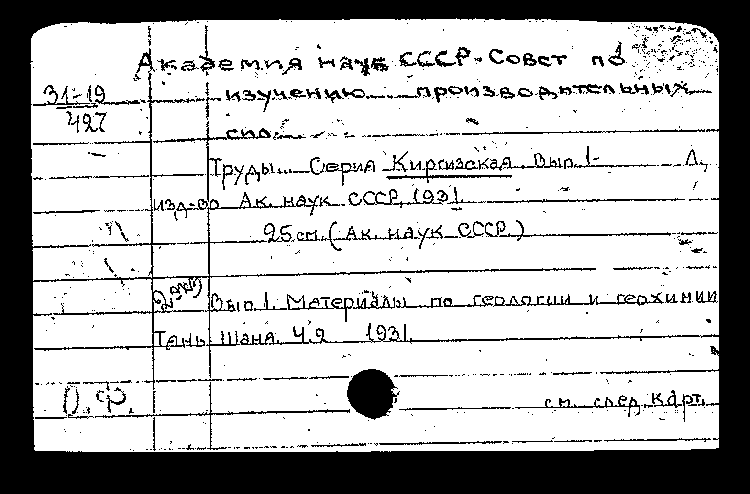 Академия наук СССР - Совет по
31-19
изучению производительных
427
сил.
Труды... Серия Киргизская. Вып. 1- Л.,
изд-во Ак. наук СССР, 1931.
25 см. (Ак. наук СССР)
Вып. 1. Материалы по геологии и геохимии
Тянь Шаня. Ч. 2 1931.
О. Ф.
см. след. карт.